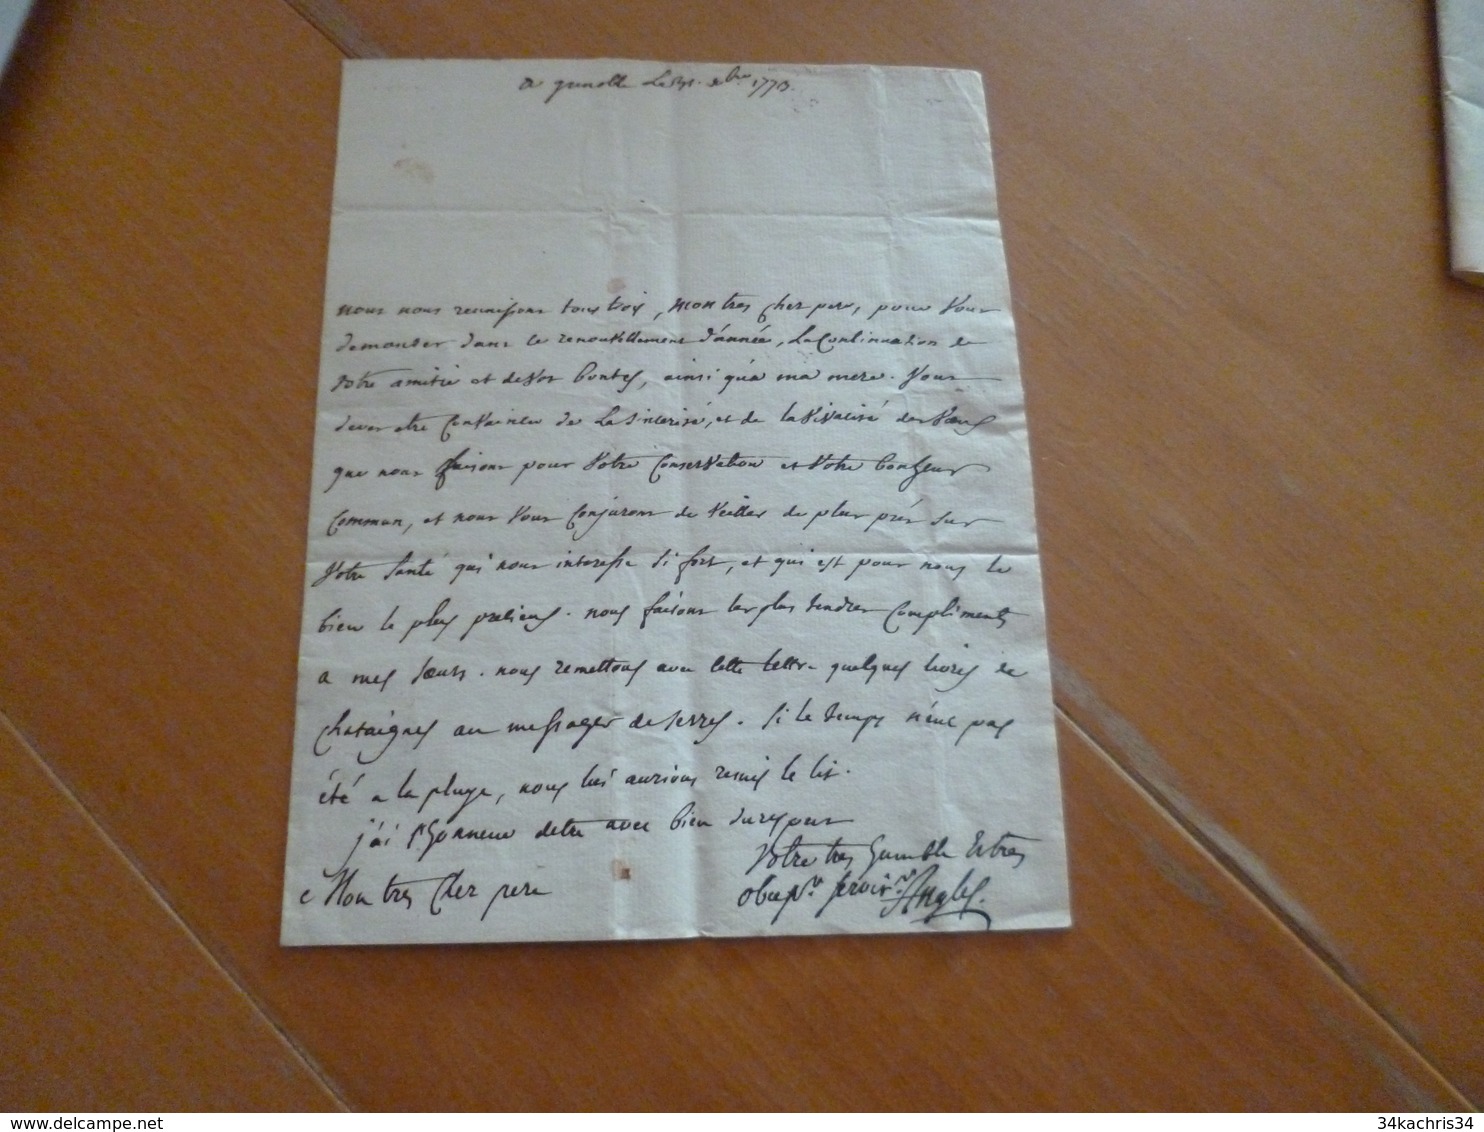 a grenoble Le 31. xbre 1773.
nous nous reunissons tous trois, mon tres cher pere, pour vous
demander dans le renouvellement d'année, La Continuation de
votre amitié et de vos bontés, ainsi qu'a ma mere. Vous
deves etre Convaincu de La sincerité, et de la vivacité des vœux
que nous faisons pour votre Conservation et votre bonheur
Commun, et nous vous Conjurons de veiller de plus prés sur
votre santé qui nous interesse si fort, et qui est pour nous le
bien le plus pretieux. nous faisons les plus tendres Compliments
a mes sœurs. nous remettons avec cette lettre quelques livres de
chataignes au messager de serres. si le temps n'eut pas
été a la pluye, nous lui aurions remis le lit.
j'ai l'honneur detre avec bien du respect
Mon tres Cher pere
Votre tres humble Et tres
obeisst. servitr. Anglès.
34kachris34